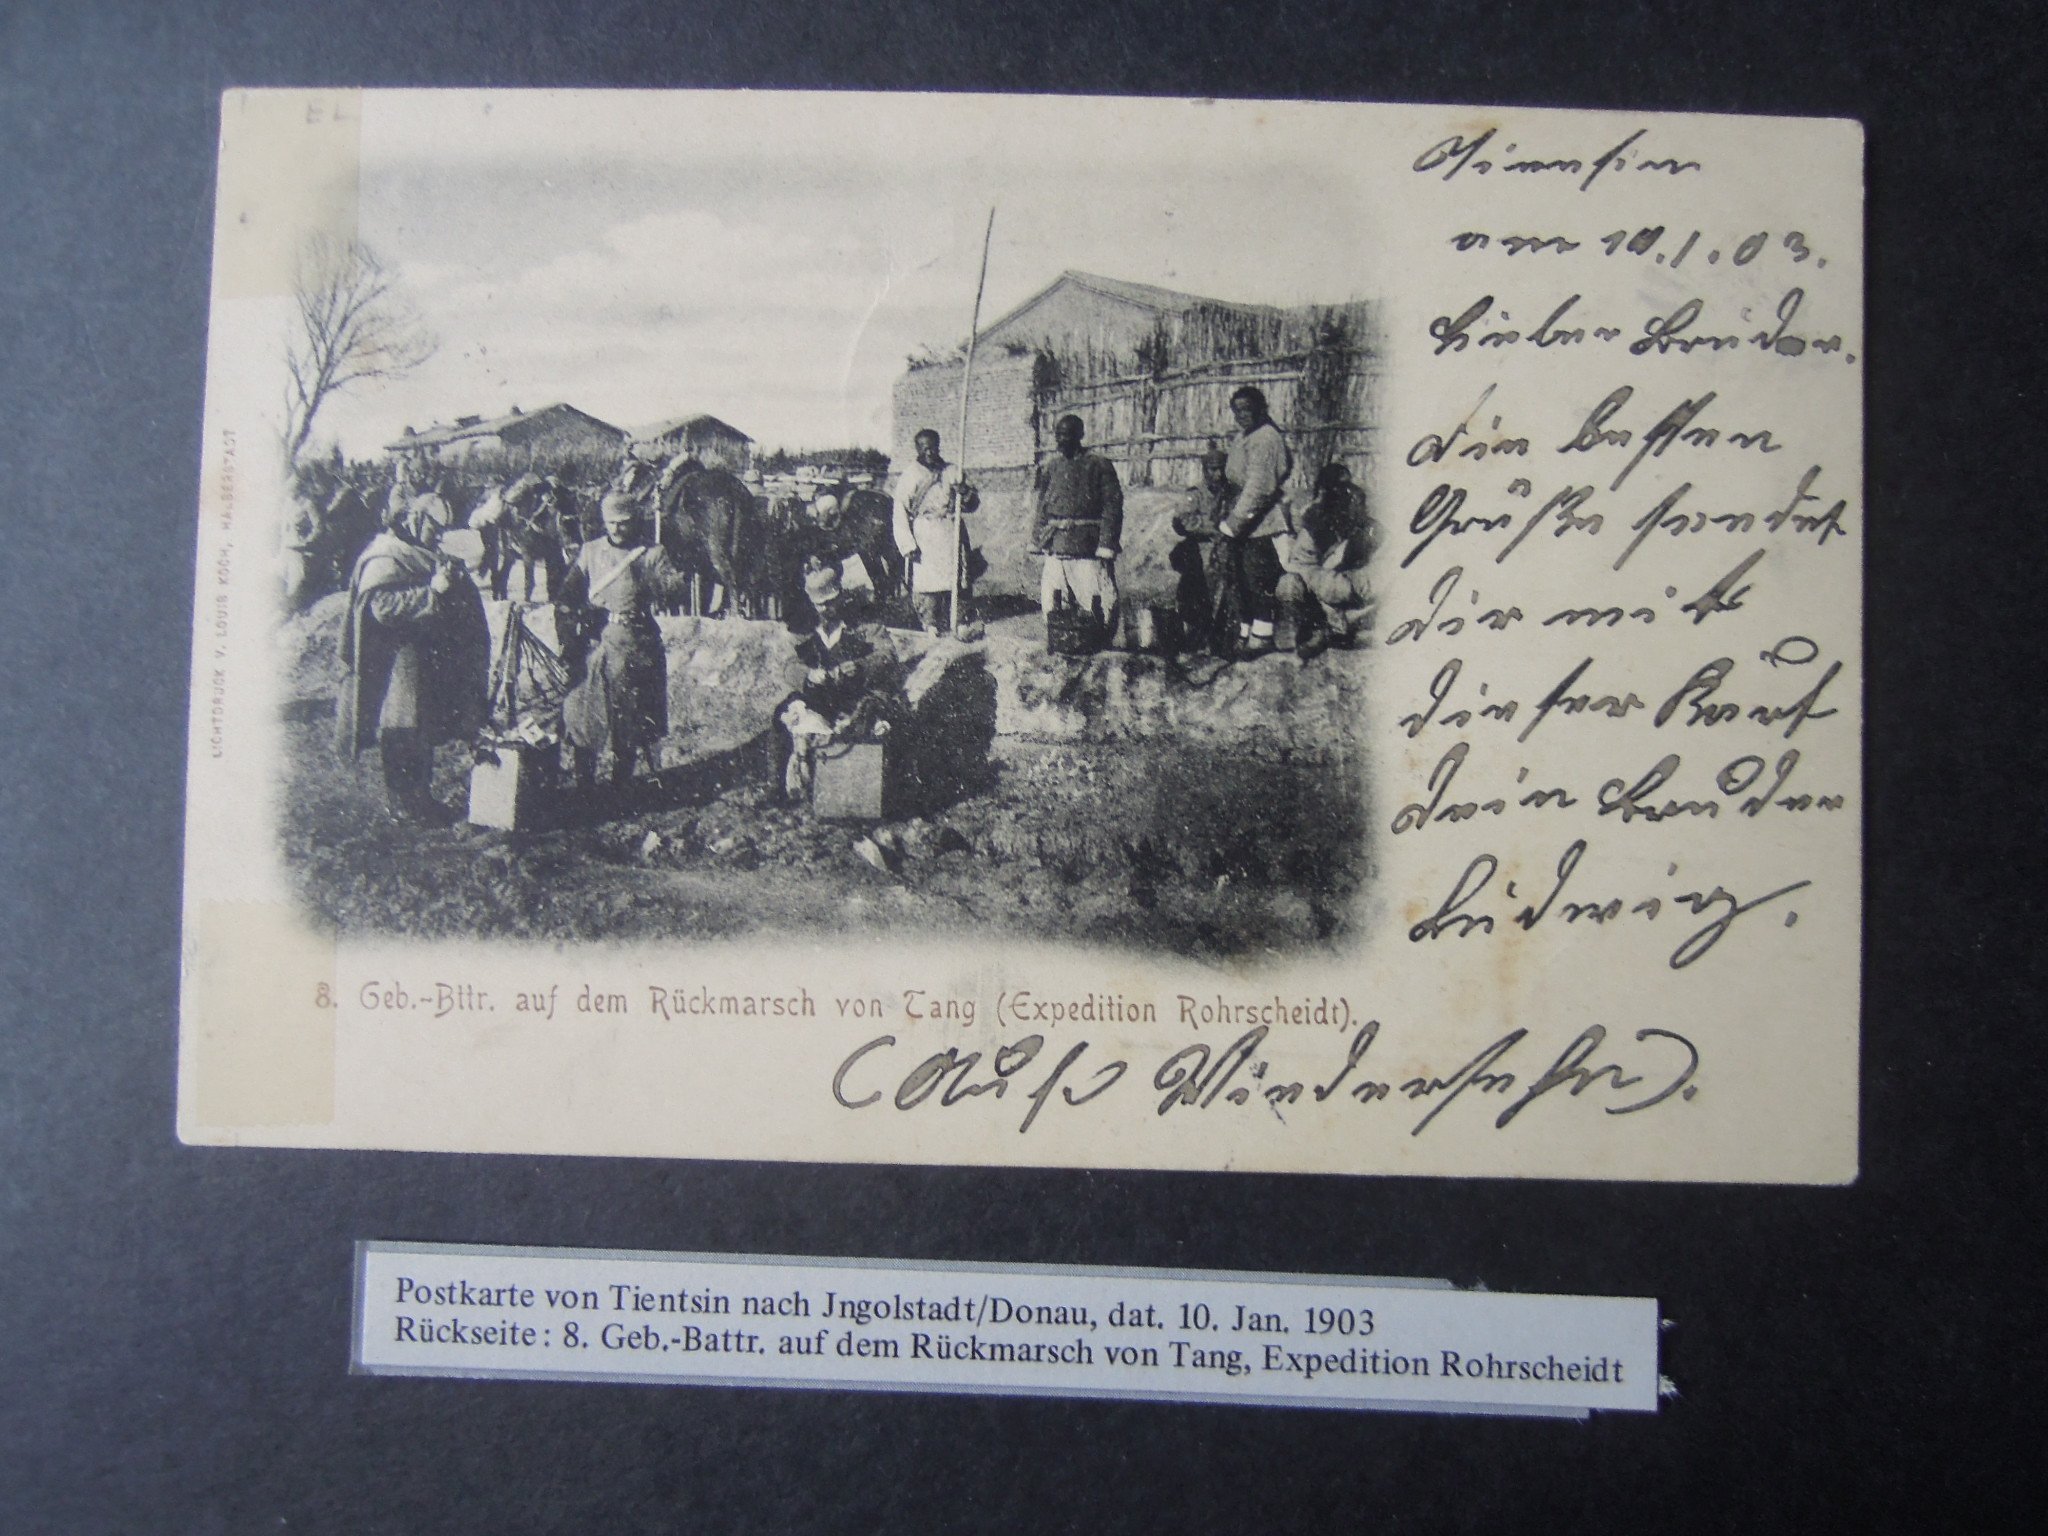 LICHTDRUCK V. LOUIS KOCH, HALBERSTADT
Tiensin
am 10.1.03.
Lieber Bruder.
die besten
Grüße sendet
dir mit
dieser Kart
dein Bruder
Ludwig.
8. Geb.-Bttr. auf dem Rückmarsch von Tang (Expedition Rohrscheidt).
(Auf Wiedersehn).
Postkarte von Tientsin nach Jngolstadt/Donau, dat. 10. Jan. 1903
Rückseite: 8. Geb.-Battr. auf dem Rückmarsch von Tang, Expedition Rohrscheidt